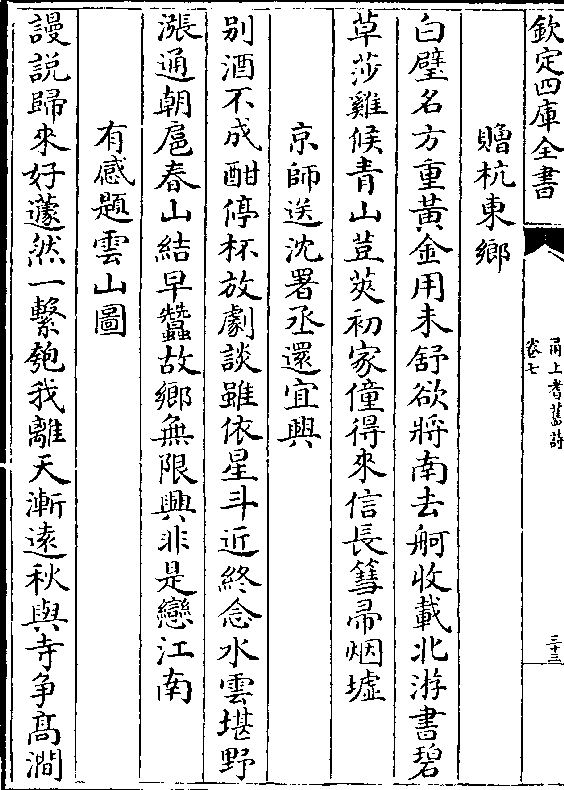 欽定四庫全書
甬上耆舊詩
卷七
三十三
贈杭東鄉
白璧名方重黃金用未舒欲將南去舸收載北游書碧
草莎雞候青山荳莢初家僮得來信長篲帚烟墟
京師送沈署丞還宜興
别酒不成酣停杯放劇談雖依星斗近終念水雲堪野
漲通朝扈春山結早蠶故鄉無限興非是戀江南
有感題雲山圖
謾說歸來好蘧然一繫匏我離天漸遠秋與寺争高澗